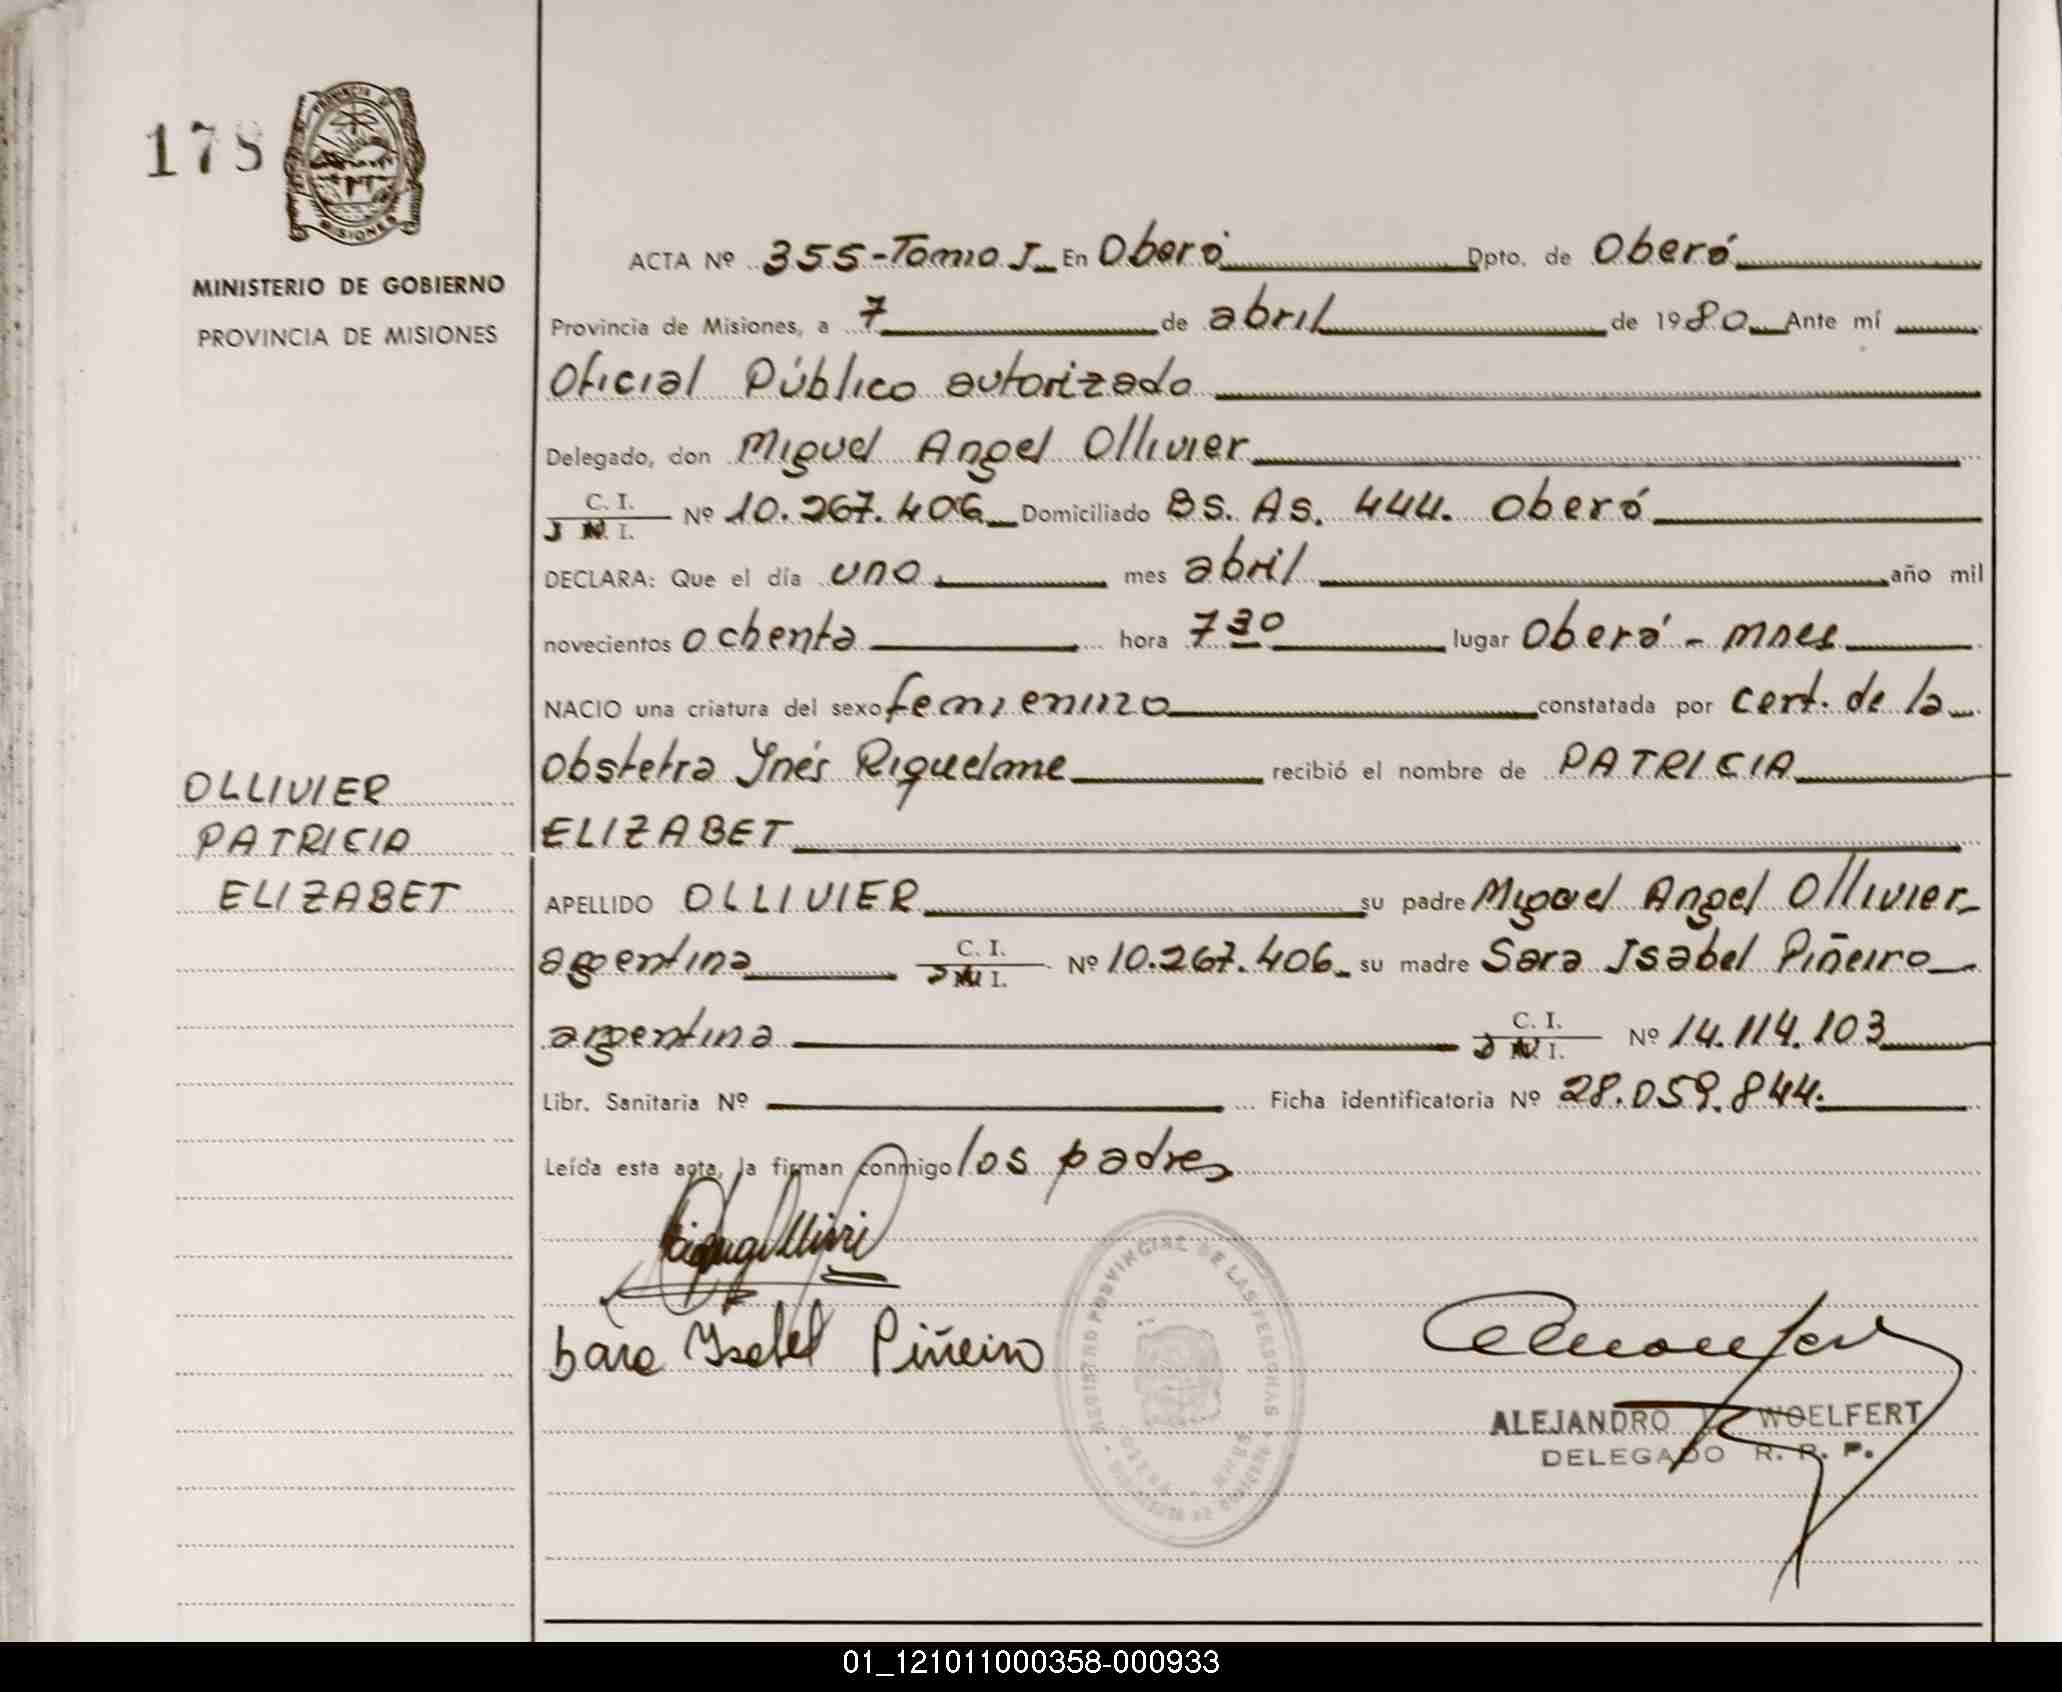 178
PROVINCIA DE
MISIONES
MINISTERIO DE GOBIERNO
PROVINCIA DE MISIONES
OLLIVIER
PATRICIA
ELIZABET
ACTA Nº 355-Tomo I En Oberá Dpto. de Oberá
Provincia de Misiones, a 7 de abril de 1980 Ante mí
Oficial Público autorizado
Delegado, don Miguel Angel Ollivier
C. I.
Nº 10.267.406 Domiciliado Bs. As. 444. Oberá
D N I.
DECLARA: Que el día uno mes abril año mil
novecientos ochenta hora 7 30 lugar Oberá - mnes
NACIO una criatura del sexo femienino constatada por cert. de la
obstetra Inés Riquelme recibió el nombre de PATRICIA
ELIZABET
APELLIDO OLLIVIER su padre Miguel Angel Ollivier
argentina C. I. Nº 10.267.406 su madre Sara Isabel Piñeiro
D N I.
argentina C. I. Nº 14.114.103
D N I.
Libr. Sanitaria Nº Ficha identificatoria Nº 28.059.844.
Leída esta acta, la firman conmigo los padres
Sara Isabel Piñeiro
REGISTRO PROVINCIAL DE LAS PERSONAS
ALEJANDRO WOELFERT
DELEGADO R. P. P.
01_121011000358-000933